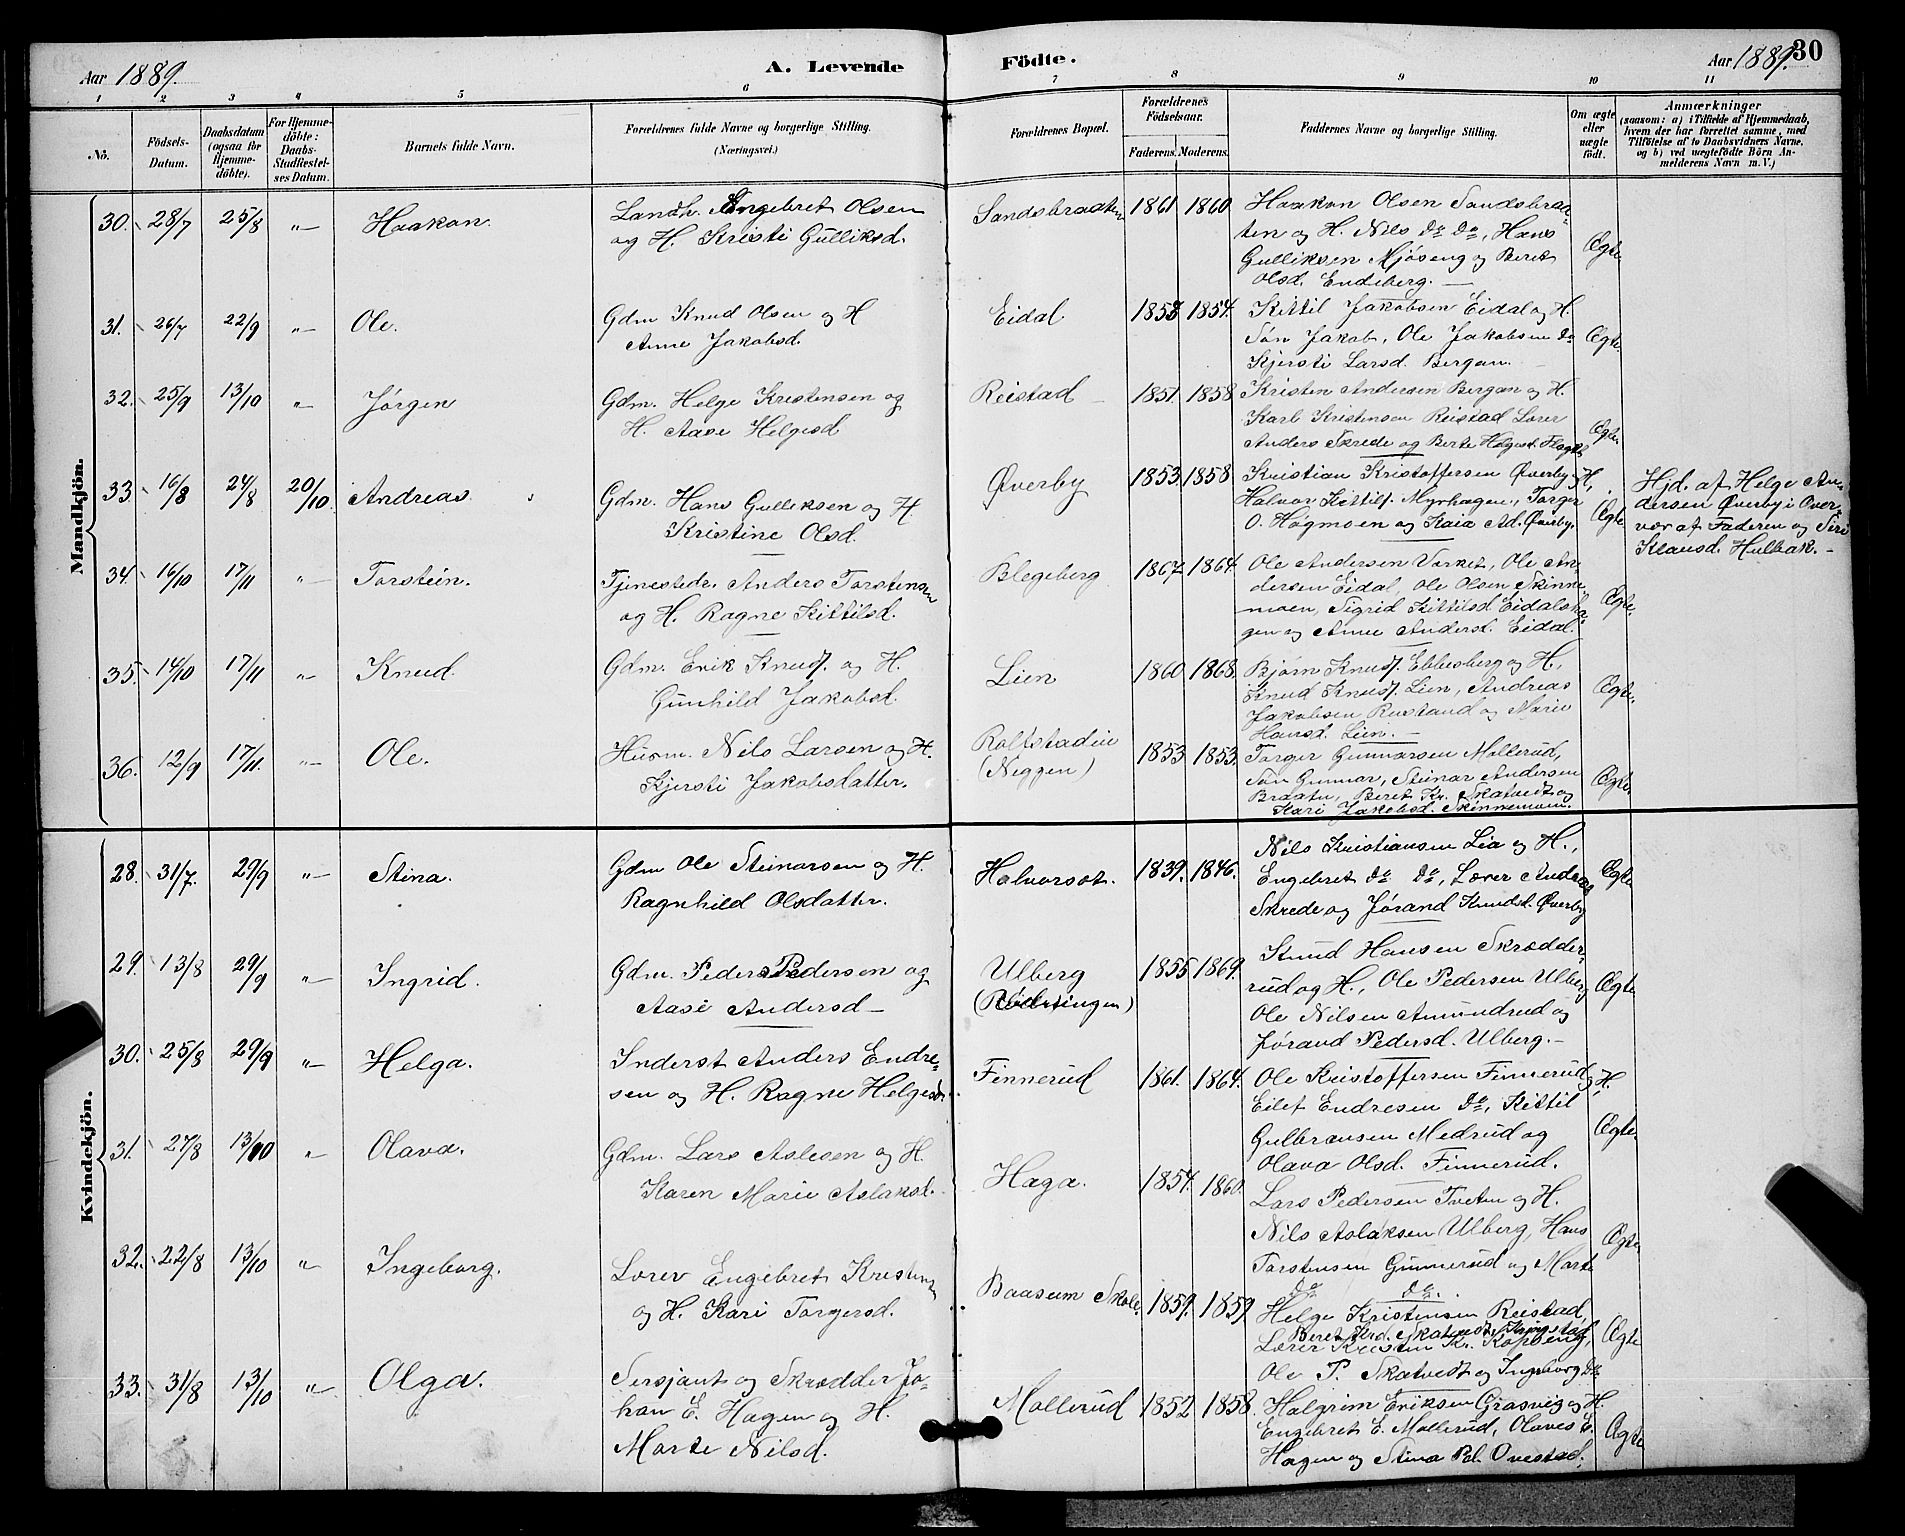 Aar 1889.
A. Levende Födte.
Aar 1889.
30
1 2 3 4 5 6 7 8 9 10 11
No.
Födsels-
Datum.
Daabsdatum
(ogsaa for
Hjemme-
döbte).
For Hjemme-
döbte:
Daabs-
Stadfæstel-
ses Datum.
Barnets fulde Navn.
Forældrenes fulde Navne og borgerlige Stilling.
(Næringsvei.)
Forældrenes Bopæl.
Forældrenes
Födselsaar.
Faderens. Moderens.
Faddernes Navne og borgerlige Stilling.
Om ægte
eller
uægte
födt.
Anmærkninger
(saasom: a) i Tilfælde af Hjemmedaab,
hvem der har forrettet samme, med
Tilföielse af to Daabsvidners Navne,
og b) ved uægtefödte Börn An-
melderens Navn m. V.)
Mandkjön.
30. 28/7 25/8 " Haakon.
Landh. Engebret Olsen
og H. Kristi Gulliksd.
Sandsbraaten 1861 1860
Haakon Olsen Sandsbraa-
ten og H. Nils do do, Hans
Gulliksen Mjøseng og Beret
Olsd. Endeberg.
Ægte
31. 26/7 22/9 " Ole.
Gdm Knud Olsen og H
Anne Jakobsd.
Eidal. 1854.
Kittil Jakobsen Eidal og H.
Søn Jakob, Ole Jakobsen do
Kjersti Larsd. Bergan.
Ægte.
32. 25/9 13/10 " Jørgen
Gdm. Helge Kristensen og
H. Aase Helgesd
Reistad 1851. 1858
Kristen Andersen Bergan og H.
Karl Kristensen Reistad Lærer
Anders Skrede og Berte Helgesd.
Ægte.
33. 16/8 24/8 20/10 Andreas.
Gdm. Hans Gulliksen og H
Kristine Olsd.
Øverby 1853. 1858.
Kristian Kristoffersen Øverby og H,
Halvor Kittils. Myrhagen, Torger
O. Høgmoen og Kaia Ad. Øverby.
Ægte
Hjd. af Helge An-
dersen Øverby i Over-
vær af Faderen og Siri
Klausd. Hulbak.
34. 16/10 17/11 " Torstein.
Tjenestedr. Anders Torstensen
og H. Ragne Kittilsd.
Blegeberg 1867. 1864.
Ole Andersen Varket, Ole An-
dersen Eidal, Ole Olsen Skinne-
moen, Sigrid Kittilsd Eidalsha-
gen og Anne Andersd. Eidal.
Ægte.
35. 14/10 17/11 " Knud.
Gdm. Erik Knuds. og H.
Gunhild Jakobsd.
Lien 1860 1868.
Bjørn Knuds. Ebbesberg og H,
Knud Knuds. Lien, Andreas
Jakobsen Rustand og Marie
Hansd. Lien.
Ægte.
36. 12/9 17/11. " Ole.
Husm. Nils Larsen og H.
Kjersti Jakobsdatter.
Roltstadeie
(Neggen) 1853 1853.
Torger Gunnarsen Mollerud,
Søn Gunnar, Steinar Andersen
Braaten, Beret Kr. Skatvedt og
Kari Jakobsd. Skinnemoen.
Ægte.
Kvindekjön.
28. 31/7. 29/9 " Stina.
Gdm Ole Steinarsen og H.
Ragnhild Olsdatter.
Halvorsøt. 1839. 1846.
Nils Kristiansen Lia og H.,
Engebret do do, Lærer Anders
Skrede og Jørand Knudsd. Øverby
Ægte
29. 13/8 29/9 " Ingrid.
Gdm. Peder Pedersen og
Aase Andersd
Ulberg 1855 1869.
Knud Hansen Skrædder-
rud og H., Ole Pedersen Ulberg
Ole Nilsen Amundrud og
Jørand Pedersd. Ulberg.
Ægte
30. 25/8 29/9 " Helga.
Inderst Anders Endre-
sen og H. Ragne Helgesd.
Finnerud 1861. 1864.
Ole Kristoffersen Finnerud og H,
Eilef Endresen do, Kittil
Gulbransen Medrud og
Olava Olsd. Finnerud.
Ægte.
31. 27/8 13/10 " Olava.
Gdm. Lars Aslesen og H.
Karen Marie Aslaksd.
Haga. 1854. 1860.
Lars Pedersen Tveten og H.
Nils Aslaksen Ulberg, Hans
Torstensen Gunnerud og Marte
do do.
Ægte
32. 22/8 13/10 " Ingeborg.
Lærer Engebret Kristens.
og H. Kari Torgersd.
Baasum Skole. 1859. 1859
Helge Kristensen Reistad,
Beret Krd. Skatvedt, Ringstad,
Lærer Kristen Kr. Kopseng,
Ole P. Skatvedt og Ingeborg do
Ægte
33. 31/8 13/10 " Olga.
Sersjant og Skrædder Jo-
han E. Hagen og H.
Marte Nilsd.
Mollerud 1852 1858.
Halgrim Eriksen Græsvig og H.
Engebret E. Mollerud, Olaves E.
Hagen og Stina Pd. Ovestad.
Ægte